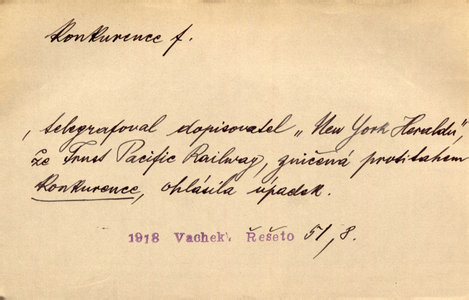 Konkurence f.
, telegrafoval dopisovatel „New York Heraldu“,
že Trust Pacific Railway, zničená protitahem
konkurence, ohlásila úpadek.
1918 Vachek. Řešeto 51, 8.